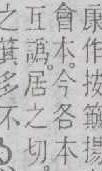 康作按簸揚
會本。今各本
互譌。居之切。
之簊多不